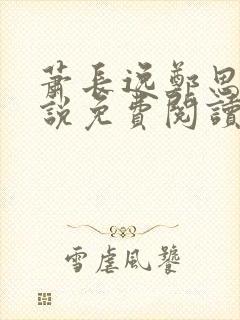 萧長逸鄭思
説免費閱讀
雪虐風饕